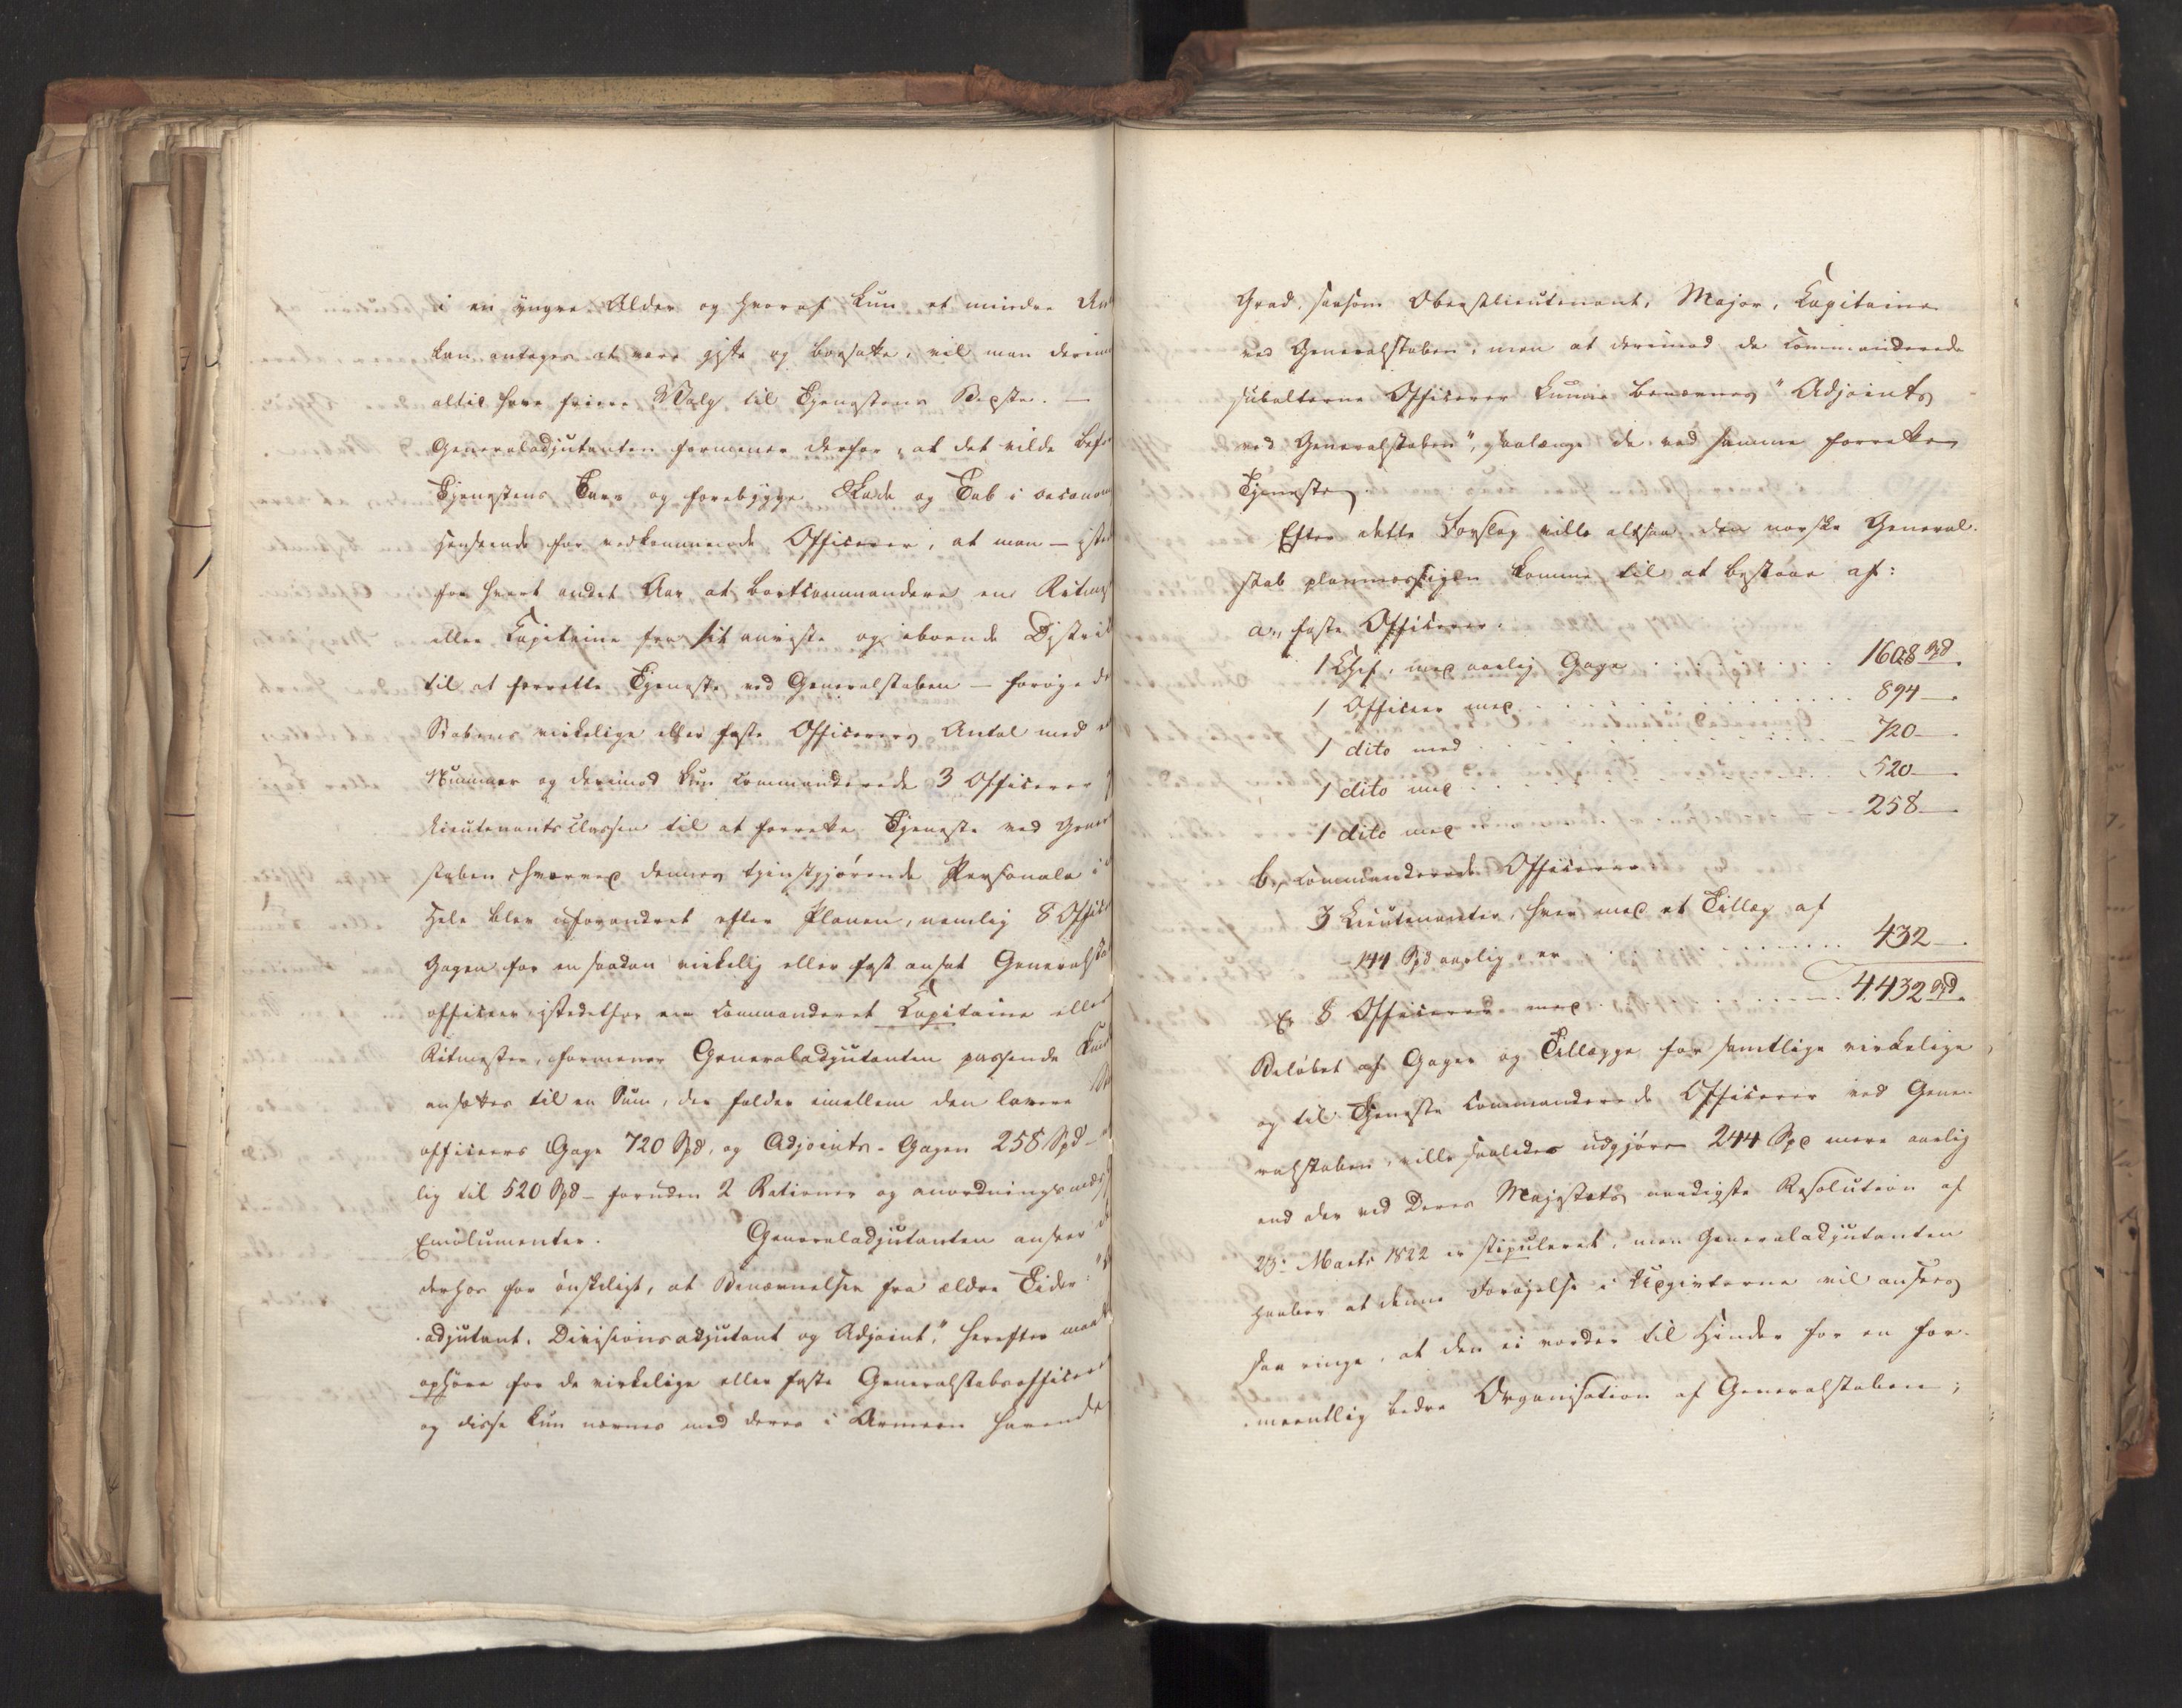 i en yngre Alder og hvoraf kun et mindre An
kan antages at være gifte og bosatte, vil man derim
altid have friere Valg til Tjenestens Bedste. —
Generaladjutanten formener derfor, at det vilde bef
Tjenestens Tarv og forebygge Skade og Tab i oeconom
Henseende for vedkommende Officerer, at man — iste
for hvert andet Aar at bortcommandere en Ritmest
eller Capitaine fra sit anviste og iboende District
til at forrette Tjeneste ved Generalstaben — forøgede
Stabens virkelige eller faste Officerers Antal med et
Nummer og derimod kun commanderede 3 Officerer af
Lieutenantsclassen til at forrette Tjeneste ved General
staben hvorved dennes tjenstgjørende Personale i det
Hele blev uforandret efter Planen, nemlig 8 Offic
Gagen for en saadan virkelig eller fast ansat Generalsta
officeer istedetfor en commanderet Capitaine eller
Ritmester, formener Generaladjutanten passende kunde
ansættes til en Sum, der falder imellem den lavere
officeers Gage 720 Spd, og Adjoints-Gagen 258 Spd —
lig til 520 Spd — foruden 2 Rationer og anordningsmæss
Emolumenter. Generaladjutanten anseer det
derhos for ønskeligt, at Benævnelsen fra ældre Tider:
adjutant, Divisionsadjutant og Adjoint," herefter maatte
ophøre for de virkelige eller faste Generalstabsofficerer
og disse kun nævnes med deres i Armeen havende
Grad, saasom Oberstlieutenant, Major, Capitaine
ved Generalstaben, men at derimod de commanderede
subalterne Officerer kunne benævnes "Adjoints
ved Generalstaben", saalænge de ved samme forrette
Tjeneste.
Efter dette Forslag ville altsaa den norske General-
stab planmæssigen komme til at bestaae af:
a, faste Officerer.
1 Chef, med aarlig Gage . . . . . . 1608 Spd.
1 Officeer med . . . . . . 894 —.
1 dito med . . . . . . 720 —.
1 dito med . . . . . . 520 —.
1 dito med . . . . . . 258 —.
b, commanderede Officerer
3 Lieutenanter, hver med et Tillæg af
144 Spd aarlig, er . . . . . . 432 —.
Er 8 Officerer med . . . . . . 4.432 Spd.
Beløbet af Gager og Tillægge for samtlige virkelige
og til Tjeneste commanderede Officerer ved Gene-
ralstaben, ville saaledes udgjøre 244 Spd mere aarlig
end der ved Deres Majestæts naadigste Resolution af
23de Marts 1822 er stipuleret, men Generaladjutanten
haaber at denne Forøgelse i Udgivterne vil ansees
saa ringe, at den ei vorder til Hinder for en for-
meentlig bedre Organisation af Generalstaben;